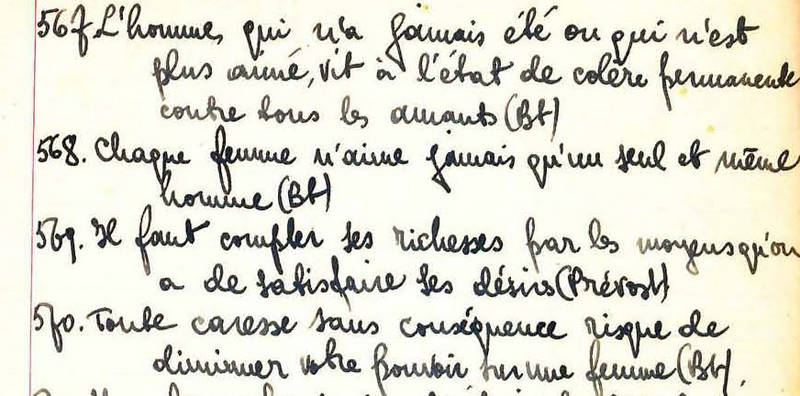 567. L'homme, qui n'a jamais été ou qui n'est
plus aimé, vit à l'état de colère permanente
contre tous les amants (Bt)
568. Chaque femme n'aime jamais qu'un seul et même
homme (Bt)
569. Il faut compter ses richesses par les moyens qu'on
a de satisfaire ses désirs (Prévost)
570. Toute caresse sans conséquence risque de
diminuer votre pouvoir sur une femme (Bt).